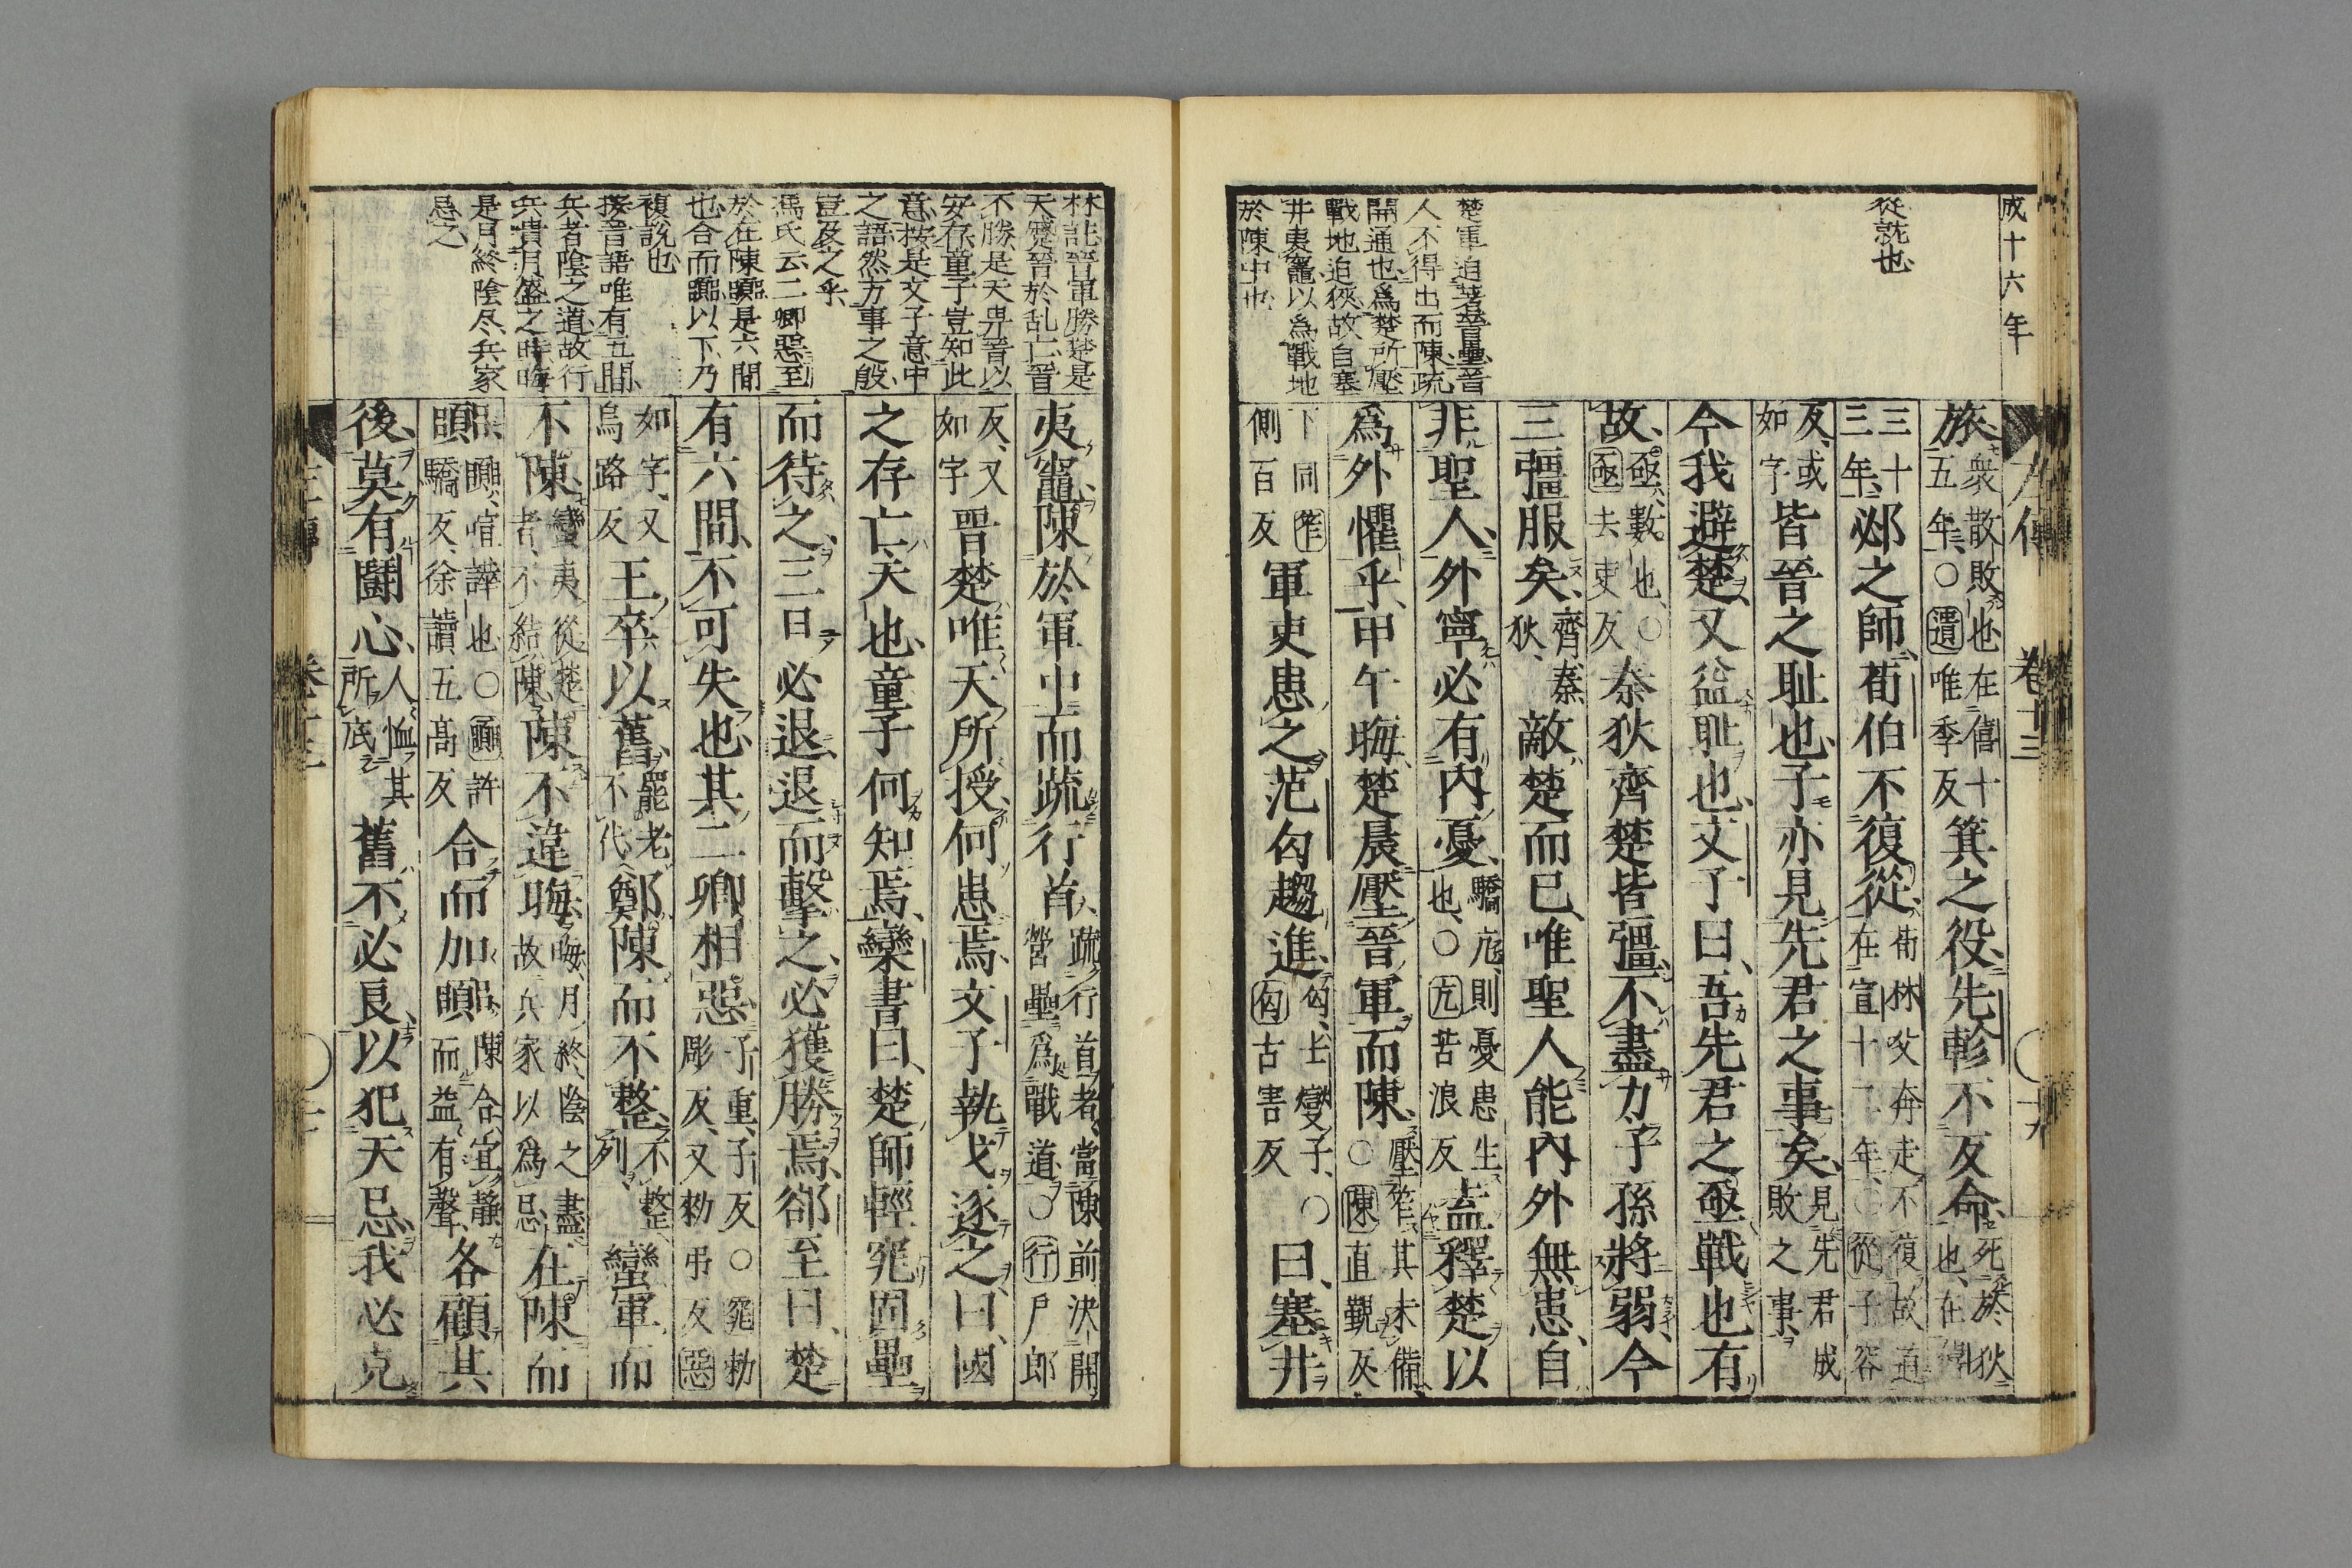 成十六年
從就也
楚軍迫著晉壘晉
人不得出而陳疏
開通也爲楚所壓
戰地迫狹故自塞
井夷竈以爲戰地
於陳中也
左傳 卷十三
旅、衆散敗也在僖十五年、○遺唯季反箕之役、先軫不反命、死於狄也、在僖三十三年、邲之師、荀伯不復從、荀林父奔走不復故道在宣十二年、○從子容反、或如字皆晉之耻也、子亦見先君之事矣、見先君成敗之事、
今我避楚、又益耻也、文子曰、吾先君之亟戰也有
故、亟、數也、○亟去吏反秦狄齊楚皆彊、不盡力、子孫將弱、今
三彊服矣、齊秦狄、敵楚而已、唯聖人能內外無患、自
非聖人、外寧必有內憂、驕亢則憂患生也、○亢苦浪反盍釋楚以
爲外懼乎、甲午晦、楚晨壓晉軍而陳、壓笮其未備○陳直覲反
下同笮側百反軍吏患之、范匃趨進、匃、士燮子、○匃古害反曰、塞井
林註晉軍勝楚是
天蹙晉於乱亡晉
不勝是天畀晉以
安存童子豈知此
意按是文子意中
之語然方事之殷
豈及之乎
馮氏云二卿惡至
於在陳嚻是六間
也合而嚻以下乃
複說也
按晉語唯有五間
兵者陰之道故行
兵貴月盛之時晦
是月終陰尽兵家
忌之
夷竈、陳於軍中而疏行首、疏行首者、當陳前決開營壘爲戰道、○行戶郎
反、又如字晉楚唯天所授、何患焉、文子執戈逐之、曰、國
之存亡、天也、童子何知焉、欒書曰、楚師輕窕、固壘
而待之、三日必退、退而擊之、必獲勝焉、郤至曰、楚
有六間、不可失也、其二卿相惡、子重、子反○窕勑彫反、又勑弔反惡
如字、又烏路反王卒以舊、罷老不代鄭陳而不整、不整列、蠻軍而
不陳、蠻夷從楚者、不結陳陳不違晦、晦、月終、陰之盡、故兵家以爲忌在陳而
嚻、嚻、喧譁也、○嚻許驕反、徐讀五高反合而加嚻、陳合、宜靜而益有聲、各顧其
後、莫有鬪心、人恤其所底舊不必良、以犯天忌、我必克